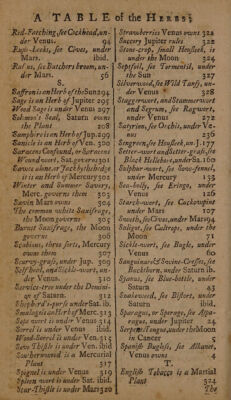 A TABLE of the HERBS;
Red-Fatching, see Cockhead, under Venus. 94
Rupt-Leeks, see Coves, under Mars. ibid.
Rus us, see Butchers broom, under Mars. 56
S.
Saffron is an Herb of the Sun 294
Sage is an Herb of Jupiter 295
Wood Sage is under Venus 297
Solomon's Seal, Saturn owns the Plant 298
Samphire is an Herb of Jup. 299
Sanicle is an Herb of Ven. 300
Saracens Confound, or Saracens Wound-wort, Saturn governs 301
Sauce alone, or Jack by the hedge is an Herb of Mercury 302
Winter and Summer Savory, Merc. governs them 303
Savin Mars owns 304
The common white Saxifrage, the Moon governs 305
Burnet Saxifrage, the Moon governs 306
Scabious, three sorts, Mercury owns them 307
Scurvy-grass, under Jup. 309
Self heal, under Venus 310
Service-tree under the Dominion of Saturn. 312
Shepherd's-purse under Sat. ib.
Smalage is an Herb of Merc. 313
Sope wort is under Venus 314
Sorrel is under Venus ibid.
Wood-Sorrel is under Ven. 315
Sow Thistle is under Ven. ibid.
Southernwood is a Mercurial Plant 317
Spignel is under Venus 319
Spleen wort is under Sat. ibid.
Star-Thistle is under Mars 320
Strawberries Venus owns 322
Succory Jupiter rules 322
Stone-crop, small Houseleek, under the Moon 324
Septfoil, see Tormentil, under the Sun 327
Silverweed, see Wild Tansy, under Venus 328
Staggerwort, and Stammerwort and Segrum, see Ragwort, under Venus
Satyrion, see Orchis, under Ven. 236
Sengreen, see Houseleek, un. J. 177
Setter-wort and Setter-grass, see Black Hellebore, under Sa. 160
Sulphur-wort, see Sow-fennel, under Mercury 153
Sea-holly, see Eringo, under Venus 126
Starch-wort, see Cuckowpint under Mars 107
Smeeth, see Cives, under Mars
Saligot, see Caltrope, under the Moon 71
Sickle-wort, see Bugle, under Venus 60
Sanguinary of Sevine-Cresses, see Buckthorn, under Saturn ib.
Synnus, see Blue-bottle, under Saturn
Snakeweed, see Bistort, under Saturn ibid.
Sparagus, or Sperage, see Asparagus, under Jupiter 24
Serpents Tongue, under the Moon in Cancer 5
Spanish Bugloss, see Alkanet, Venus owns 4
T.
English Tobacco is a Martial Plant 324
The